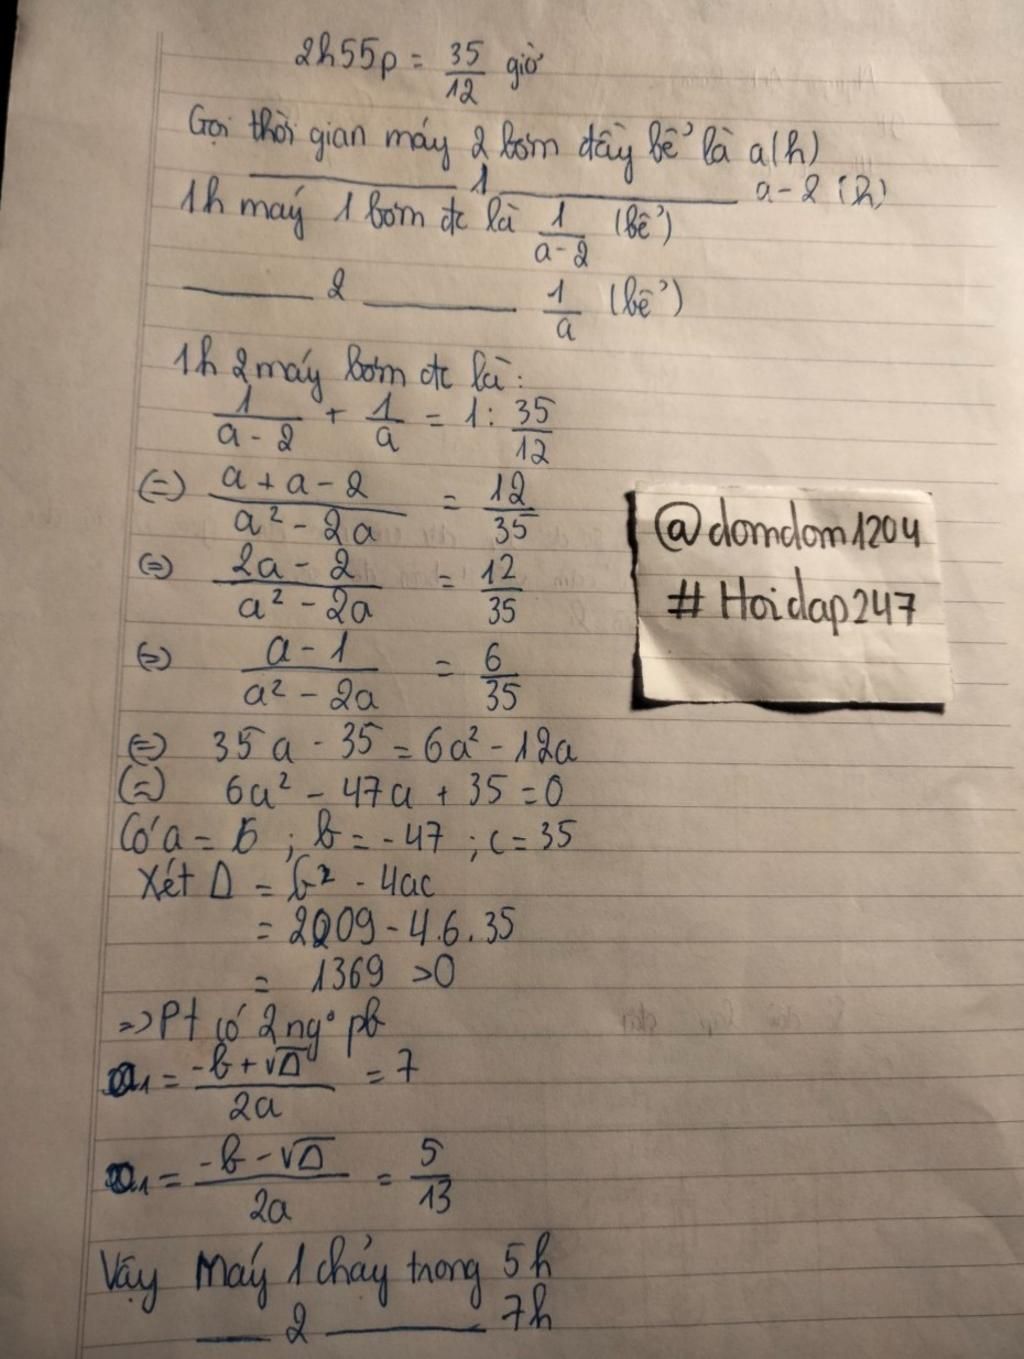 2h55p = 35/12 giờ
Gọi thời gian máy 2 bơm đầy bể là a(h)
_____ 1 _____ a-2 (h)
1h máy 1 bơm đc là 1/(a-2) (bể)
_____ 2 _____ 1/a (bể)
1h 2 máy bơm đc là:
1/(a-2) + 1/a = 1: 35/12
(=) (a+a-2)/(a²-2a) = 12/35
(=) (2a-2)/(a²-2a) = 12/35
(=) (a-1)/(a²-2a) = 6/35
(=) 35a - 35 = 6a² - 12a
(=) 6a² - 47a + 35 = 0
Có a = 6 ; b = -47 ; c = 35
Xét Δ = b² - 4ac
= 2209 - 4.6.35
= 1369 >0
=> Pt có 2 ngº pb
a₁ = (-b+√Δ)/2a = 7
a₁ = (-b-√Δ)/2a = 5/13
Vậy Máy 1 chảy trong 5h
___ 2 _____ 7h
@domdom1204
# Hoidap247